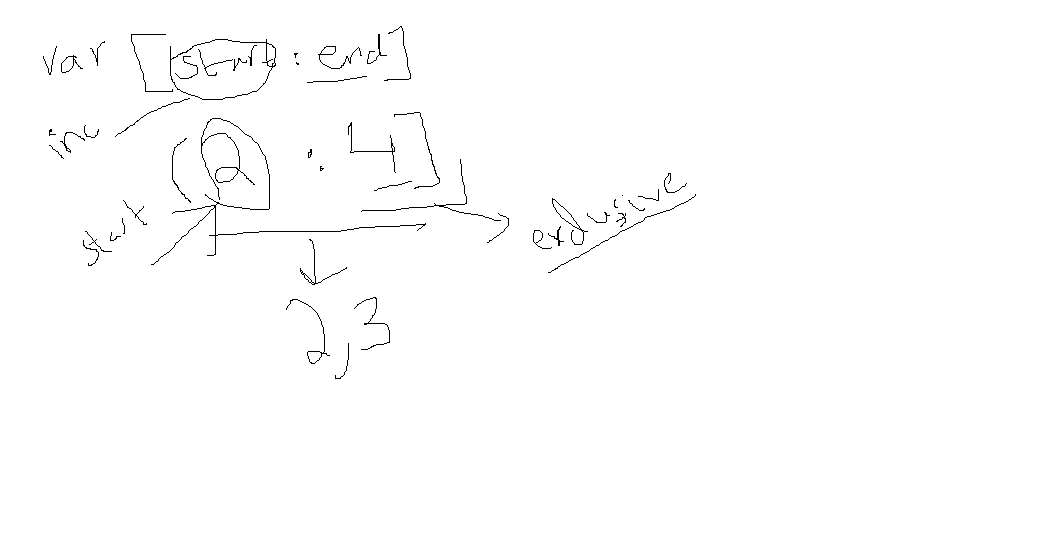 var [start : end]
inc
(2 : 4]]
start
exclusive
2,3